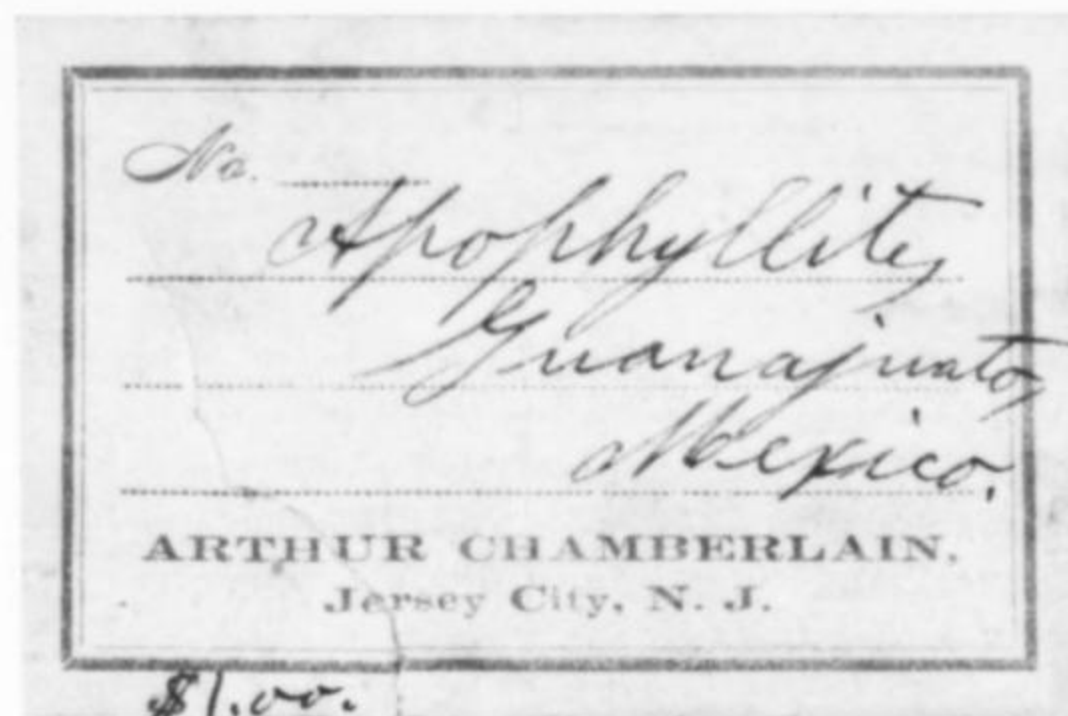 No.
Apophyllite,
Guanajuato,
Mexico.
ARTHUR CHAMBERLAIN,
Jersey City, N. J.
$1.00.